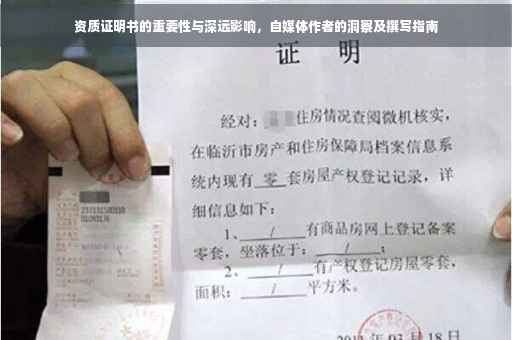 资质证明书的重要性与深远影响，自媒体作者的洞察及撰写指南
证 明
经对：住房情况查阅微机核实，
在临沂市房产和住房保障局档案信息系
统内现有 零 套房屋产权登记记录，详
细信息如下：
1、 / 有商品房网上登记备案
零套，坐落位于： / ；
2、 / 有产权登记房屋零套，
面积： / 平方米。
年03月18日